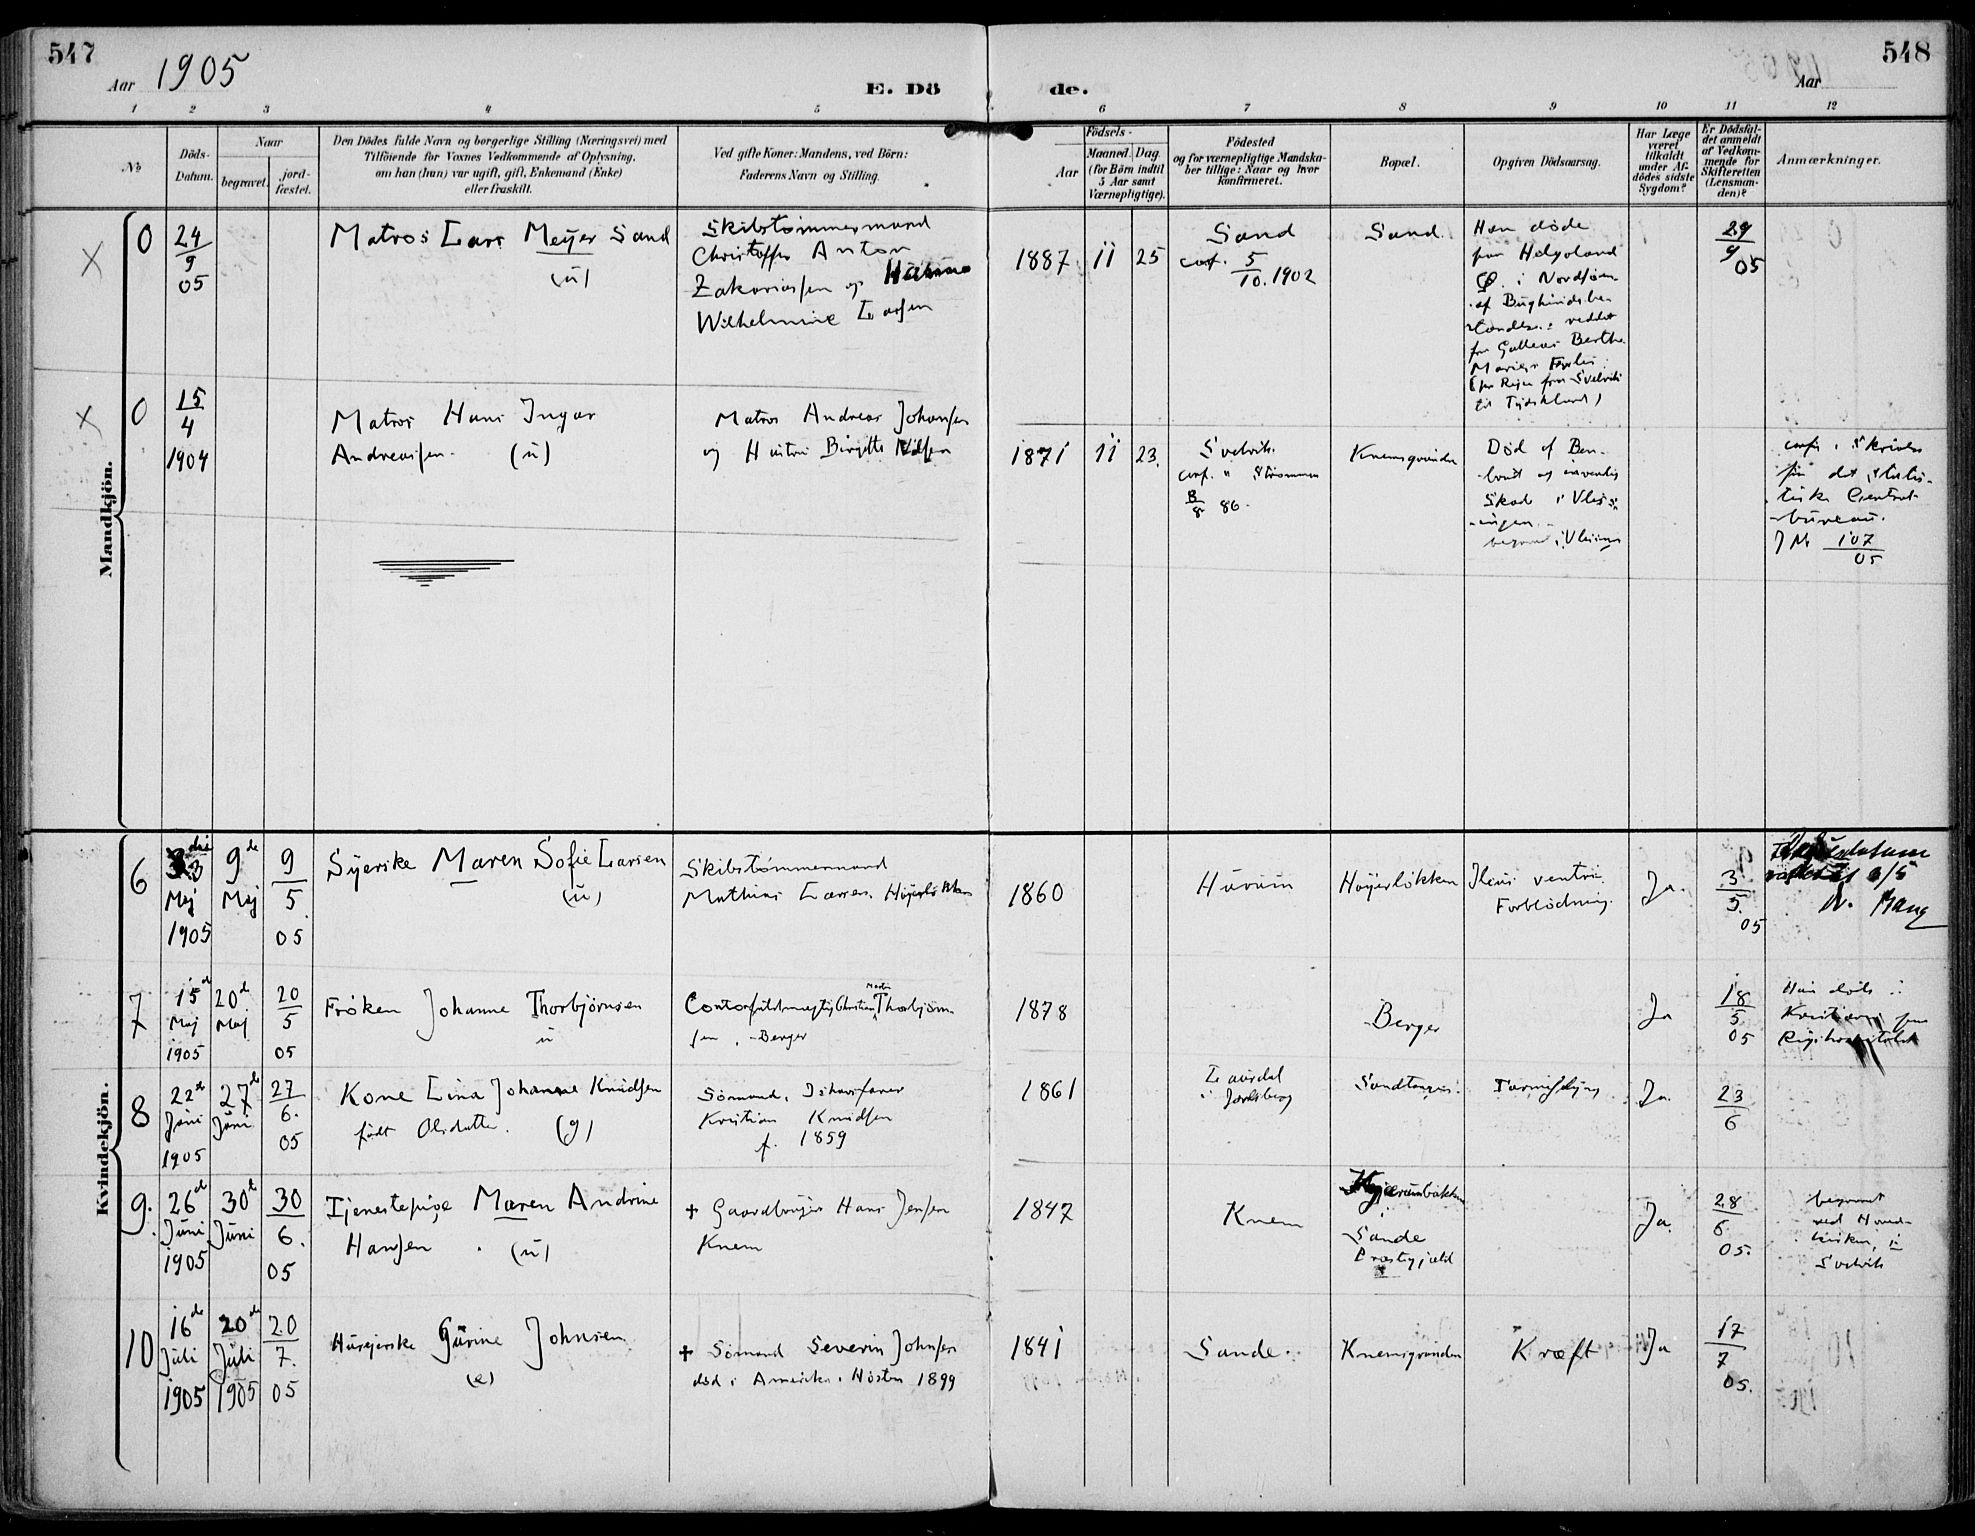 547
Aar 1905
E. Dö
de.
Aar
548
1 2 3 4 5 6 7 8 9 10 11 12
No
Döds-
Datum.
Naar
begravet.
jord-
fæstet.
Den Dödes fulde Navn og borgerlige Stilling (Næringsvei) med
Tilföiende for Voxnes Vedkommende af Oplysning,
om han (hun) var ugift, gift, Enkemand (Enke)
eller fraskilt.
Ved gifte Koner: Mandens, ved Börn:
Faderens Navn og Stilling.
Födsels-
Aar
Maaned. Dag
(for Börn indtil
5 Aar samt
Værnepligtige).
Födested
og for værnepligtige Mandska-
ber tillige: Naar og hvor
konfirmeret.
Bopæl.
Opgiven Dödsaarsag.
Har Læge
været
tilkaldt
under Af-
dödes sidste
Sygdom?
Er Dödsfal-
det anmeldt
af Vedkom-
mende for
Skifteretten
(Lensman-
den)?
Anmærkninger.
Mandkjön.
X 0
24
9
05
Matros Lars Meyer Sand
(u)
Skibstømmermand
Christoffer Anton
Zakariassen og Hanna
Wilhelmine Larsen
1887 11 25
Sand
conf. 5
10. 1902
Sand
Han døde
paa Helgoland
i Nordsjøen
af
fra Svelvik
til Tydskland)
29
9
05
X 0
15
4
1904
Matros Hans Ingar
Andreassen. (u)
Matros Andreas Johansen
og Hustru Birgitte Nilsen
1871 11 23.
Svelvik.
conf. " Strømmen
8 86.
Knemsgrunden
Død af Ben-
brud og indvendig
Skad i Vlis-
ingen
begravet i Vlissingen
Skrivelse
fra det Statis-
tiske Central-
bureau.
J No 107
05
Kvindekjön.
6
Maj
1905
9de
Maj
9
5
05
Syerske Maren Sofie Larsen
(u)
Skibstømmermand
Mathias Larsen Høyerløkken
1860
Hurum
Høyerløkken
Ileus ventri.
Forblødning.
Ja.
3
5.
05
3/5
7
15de
Maj
1905
20de
Maj
20
5
05
Frøken Johanne Thorbjørnsen
u
Contorfuldmægtig Christian Martin Thorbjørn-
sen, Berger
1878
Berger
Ja
18
5
05
Hun døde i
Kristiania paa
Rigshospitalet
8
22de
Juni
1905
27de
Juni
27
6.
05
Kone Lina Johanne Knudsen
født Olsdatter. (g)
Sømand,
Kristian Knudsen
f. 1859
1861
Laurdal
i Jarlsberg
Sandtangen
Tarmslyng
Ja.
23
6
9.
26de
Juni
1905
30te
Juni
30
6.
05
Tjenestepige Maren Andrine
Hansen. (u)
† Gaardbruger Hans Jensen
Knem
1847
Knem
Sande
Præstegjæld
Ja.
28
6
05.
begravet
ved Hoved-
kirken, i
Svelvik
10
16de
Juli
1905
20de
Juli
1905
20
7.
05
Husejerske Gurine Johnsen
(e)
† Sømand Severin Johnsen
død i Amerika. Høsten 1899
1841
Sande.
Knemsgrunden
Kræft
Ja
17
7
05.